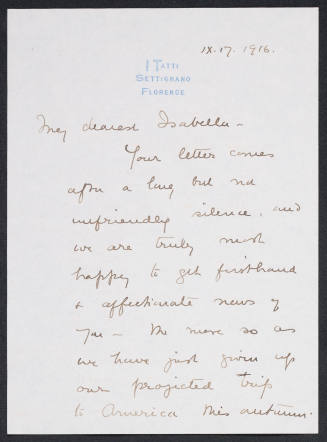 IX.17.1916.
I TATTI
SETTIGNANO
FLORENCE
My dearest Isabella –
Your letter comes
after a long but not
unfriendly silence, and
we are truly most
happy to get firsthand
& affectionate news of
you – the more so as
we have just given up
our projected trip
to America this autumn.